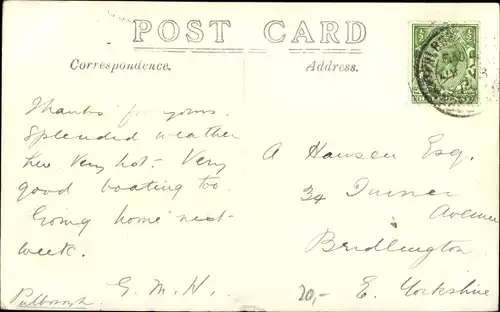 POST CARD
Correspondence.
Address.
Thanks for yours.
Splendid weather
here Very hot - Very
good boating too.
Going home next
week.
G. M. H.
Pulborough
A Hansen Esq.
34 Turner
Avenue
Bridlington
E. Yorkshire
20,-